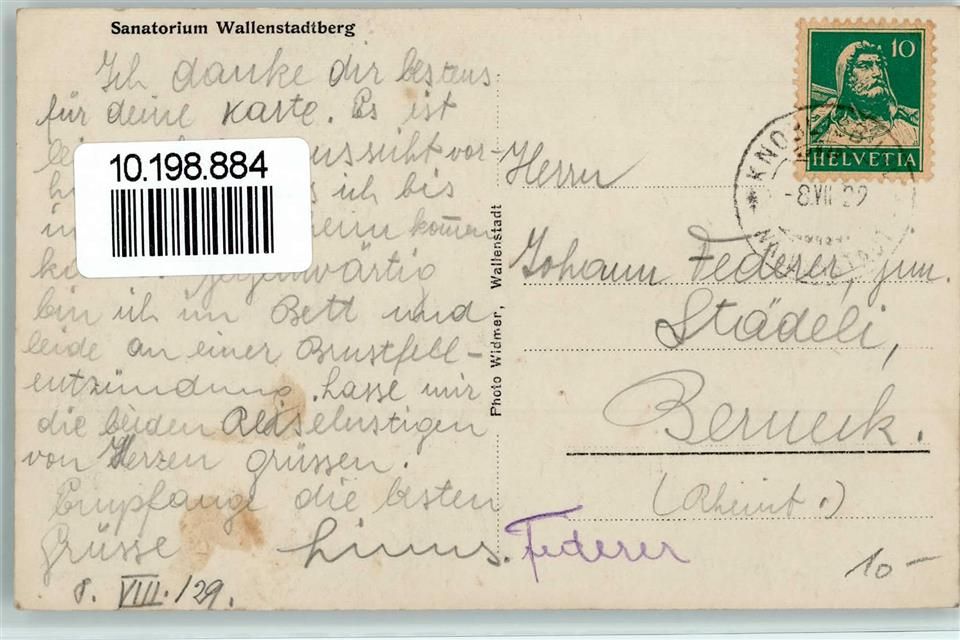 Sanatorium Wallenstadtberg
Ich danke dir bestens
für deine Karte. Es ist
vor-
ich bis
kommen
gegenwärtig
bin ich im Bett und
leide an einer Brustfell-
entzündung. Lasse mir
die beiden
von Herzen grüssen.
Empfange die besten
Grüsse Linus. Federer
8. VIII./29.
10.198.884
Photo Widmer, Wallenstadt
10
HELVETIA
-8.VII 29
Herrn
Johann Federer, jun.
Städeli,
Berneck.
(Rheint.)
10 —